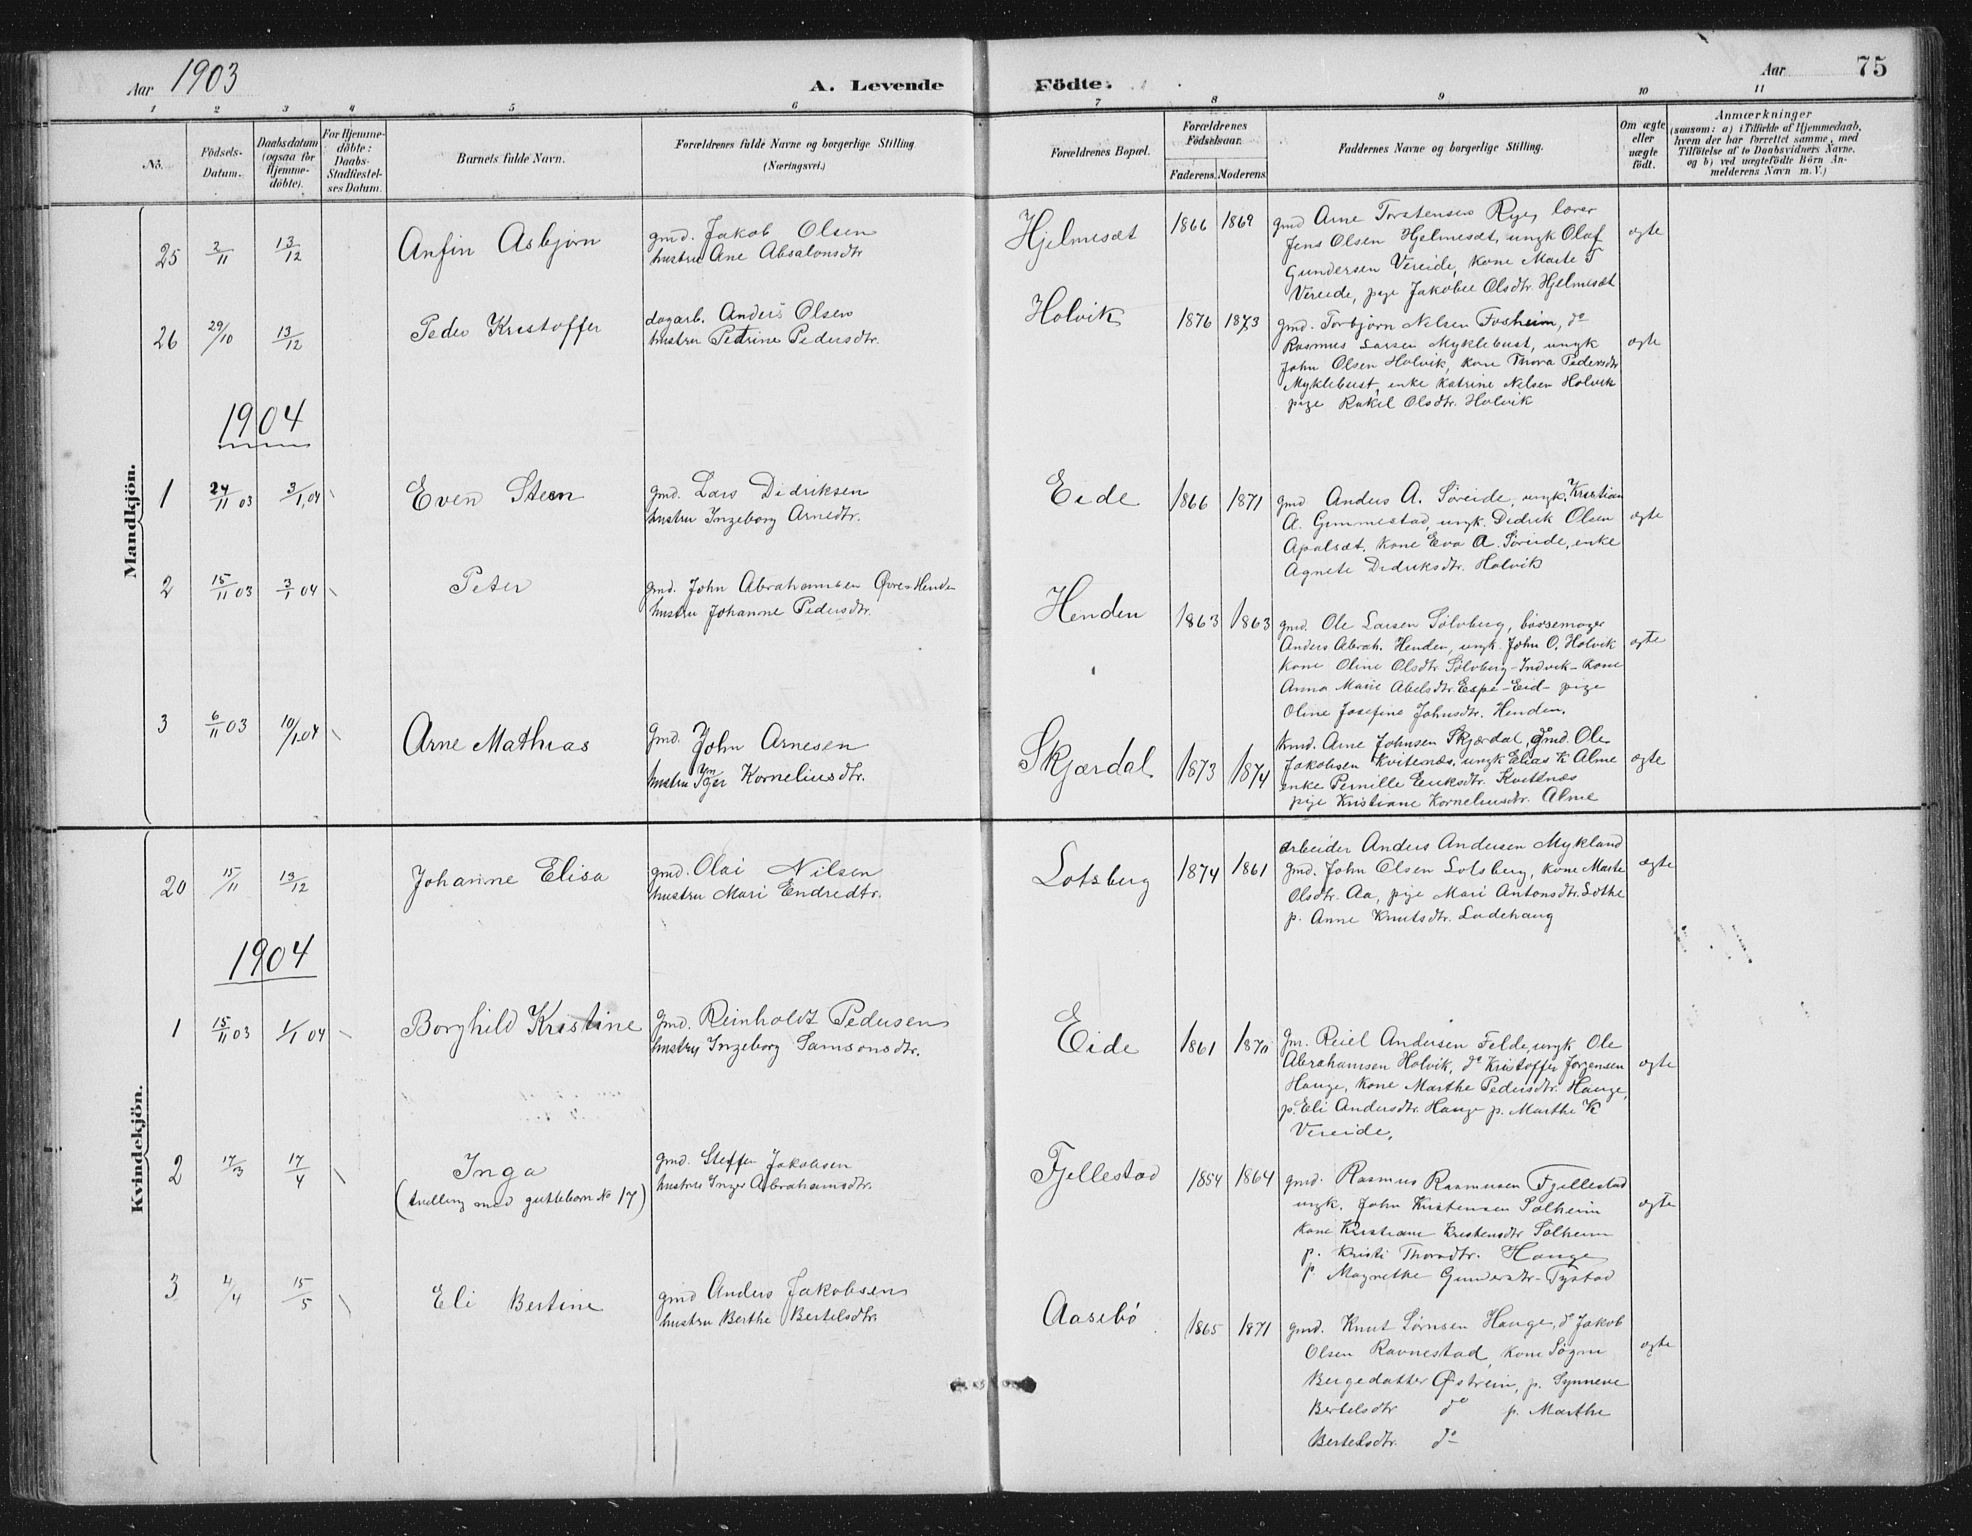 Aar 1903
A. Levende Födte.
Aar 75
1 2 3 4 5 6 7 8 9 10 11
No.
Födsels-Datum.
Daabsdatum (ogsaa for Hjemme-döbte).
For Hjemme-döbte: Daabs-Stadfæstel-ses Datum.
Barnets fulde Navn.
Forældrenes fulde Navne og borgerlige Stilling (Næringsvei.)
Forældrenes Bopæl.
Forældrenes Födselsaar.
Faderens. Moderens.
Faddernes Navne og borgerlige Stilling.
Om ægte eller uægte födt.
Anmærkninger
(saasom: a) i Tilfælde af Hjemmedaab,
hvem der har forrettet samme, med
Tilföielse af to Daabsvidners Navne,
og b) ved uægtefödte Börn An-
melderens Navn m. V.)
Mandkjön.
25 2/11 13/12 Anfin Asbjørn
gmd. Jakob Olsen
hustru Ane Absalonsdtr
Hjelmesæt 1866 1869
gmd Arne Torstensen Rye, lærer
Jens Olsen Hjelmesæt, ungk Olaf
Gundersen Vereide, kone Marte T
Vereide, pige Jakobee Olsdtr. Hjelmesæt
ægte
26 29/10 13/12 Peder Kristoffer
dagarb. Anders Olsen
hustru Petrine Pedersdtr.
Holvik 1876 1873
gmd. Torbjørn Nelsen Fosheim, do
Rasmus Larsen Myklebust, ungk
John Olsen Holvik, kone Thora Pedersdtr
Myklebust, enke Katrine Nelsen Holvik
pige Rakel Olsdtr. Holvik
ægte
1904
1 24/11 03 3/1 04 Even Steen
gmd. Lars Didriksen
hustru Ingeborg Arnedtr.
Eide 1866 1871
gmd Anders A. Søreide, ungk. Kristian
A. Gimmestad, ungk. Didrik Olsen
Apalsæt. kone Eva A. Søreide, enke
Agnete Didriksdtr. Holvik
ægte
2 15/11 03 3/1 04 Peter
gmd. John Abrahamsen Øvre-Henden
hustru Johanne Pedersdtr.
Henden 1863 1863
gmd. Ole Larsen Sølvberg, børsemager
Anders Abrah. Henden, ungk. John O. Holvik
kone Oline Olsdtr. Sølvberg-Indvik-kone
Anna Marie Abelsdtr. Espe-Eid- pige
Oline Josefine Johnsdtr. Henden.
ægte
3 6/11 03 10/1 04 Arne Mathias
gmd. John Arnesen
hustru Korneliusdtr.
Skjærdal 1873 1874
kmd. Arne Johnsen Skjærdal, gmd. Ole
Jakobsen Kvitenæs, ungk Elias K Alme
enke Pernille Eriksdtr. Kvitenæs
pige Kristiane Korneliusdtr. Alme
ægte
Kvindekjön.
20 15/11 13/12 Johanne Elisa
gmd. Olai Nilsen
hustru Mari Endredtr.
Lotsberg 1874 1861
arbeider Anders Andersen Mykland
gmd. John Olsen Lotsberg, kone Marte
Olsdtr. Aa, pige Mari Antonsdtr. Lothe
p. Anne Knutsdtr. Ladehaug
ægte
1904
1 15/11 03 1/1 04 Borghild Kristine
gmd. Reinholdt Pedersen
hustru Ingeborg Samsonsdtr.
Eide 1861 1870
gm. Reiel Andersen Felde, ungk Ole
Abrahamsen Holvik, do Kristoffer Jørgensen
Hauge, kone Marthe Pedersdtr. Hauge,
p. Eli Andersdtr. Hauge p. Marthe K
Vereide,
ægte
2 17/3 17/4 Inga
(tvilling med guttebarn No 17)
gmd. Steffen Jakobsen
hustru Inger Abrahamsdtr.
Fjellestad 1854 1864
gmd. Rasmus Rasmusen Fjellestad
ungk. John Kristensen Solheim
kone Kristiane Kristensdtr Solheim
p. Kristi Thoredtr. Hauge
p Magnethe Gundersdtr-Tystad
ægte
3 4/4 15/5 Eli Bertine
gmd Anders Jakobsen
hustru Berthe Bertelsdtr.
Aasebø 1865 1871
gmd. Knut Sørnsen Hauge, do Jakob
Olsen Ravnestad, kone Søgni
Bergedatter Østrein, p. Synneve
Bertelsdtr do p. Marthe
Bertelsdtr. do
ægte